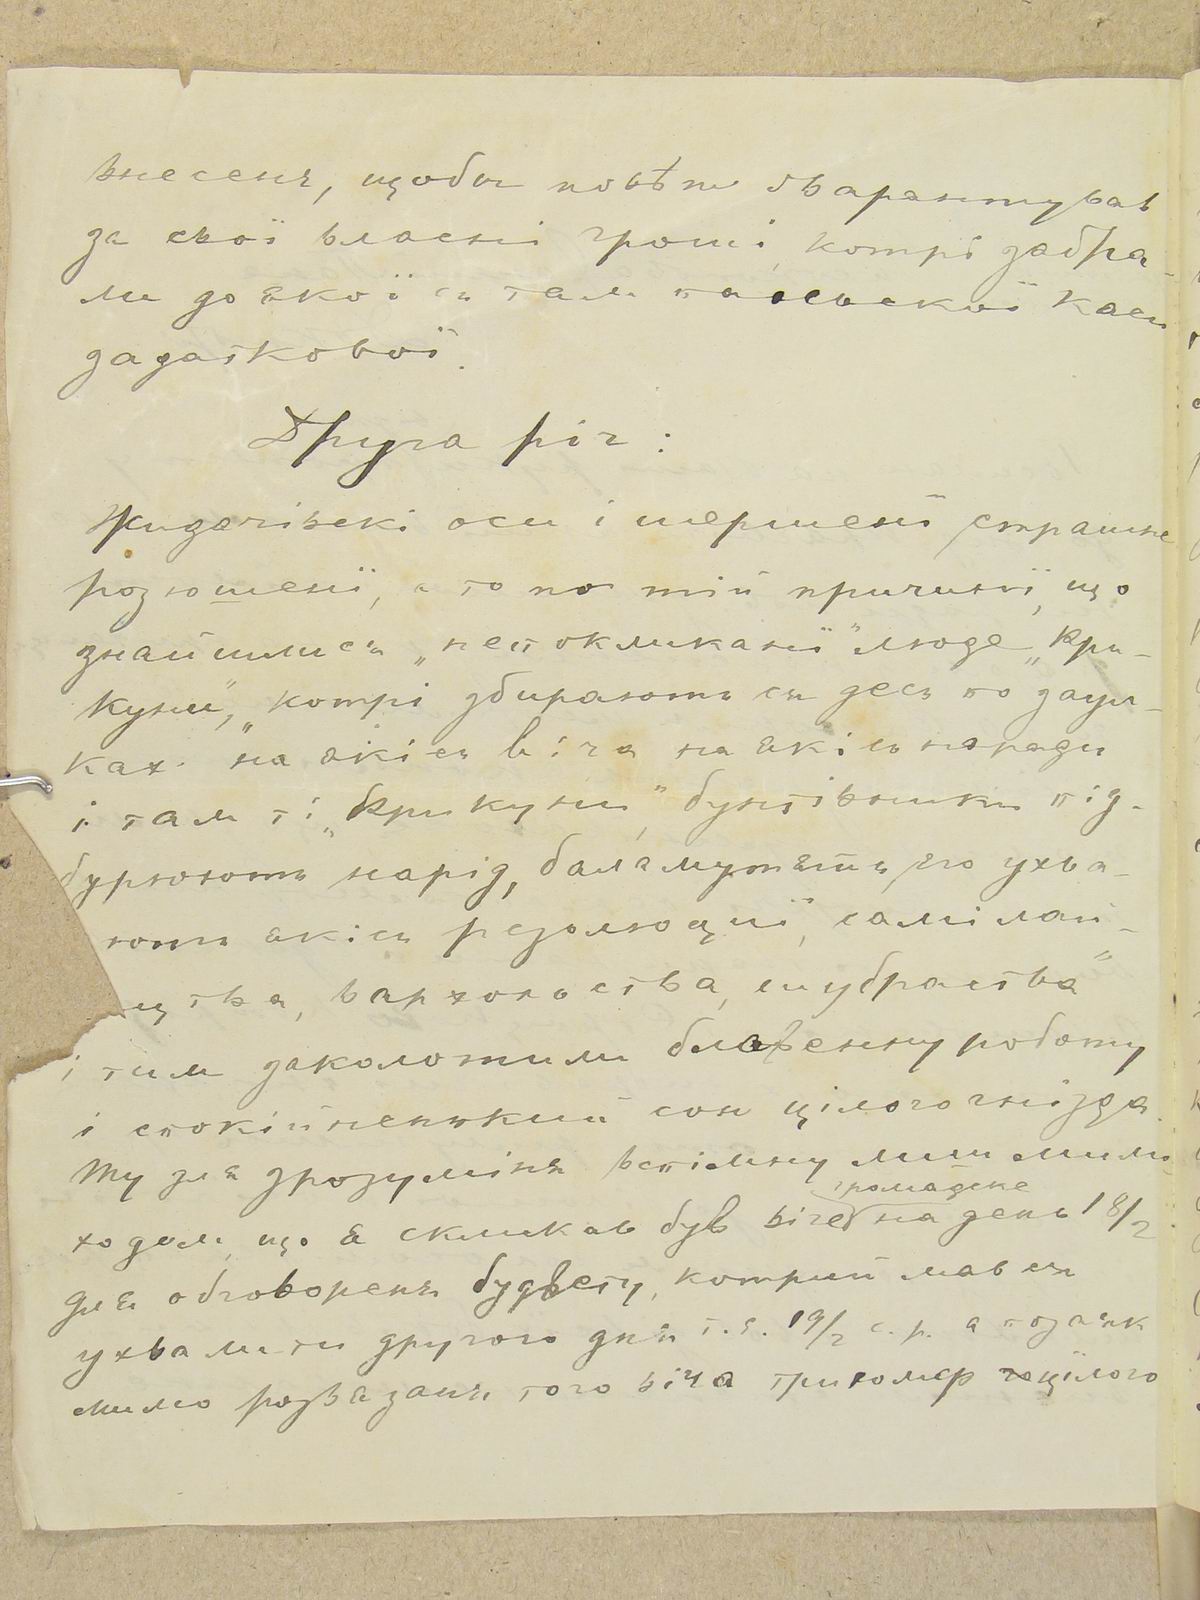 внесеня, щоби повѣт ґварантував
за свої власні гроші, котрі забра-
ли до якоїсь там панської каси
задаткової.
Друга річ:
Жидачівскі оси і шершені страшне
розюшені, а то по тій причині, що
знайшлися „непокликані" люде „кри-
куни", котрі збирають ся десь по заул-
ках на якісь віча на якісь наради
і там ті „крикуни" бунтівники під-
бурюють нарід, баламутять єго ухва-
юють якісь резолюциї, самі лай
цтва, вархольства, шубравства"
і тим заколотили блаженну роботу
і спокійненький сон цілого гнізда.
Ту для зрозуміня вспімну лиш мимо-
ходом, що я скликав був віче громадске на день 18/2
для обговореня буджету, котрий мав ся
ухвалити другого дня т.є. 19/2 с.р. а позаяк
мимо розвязаня того віча при помер цілого